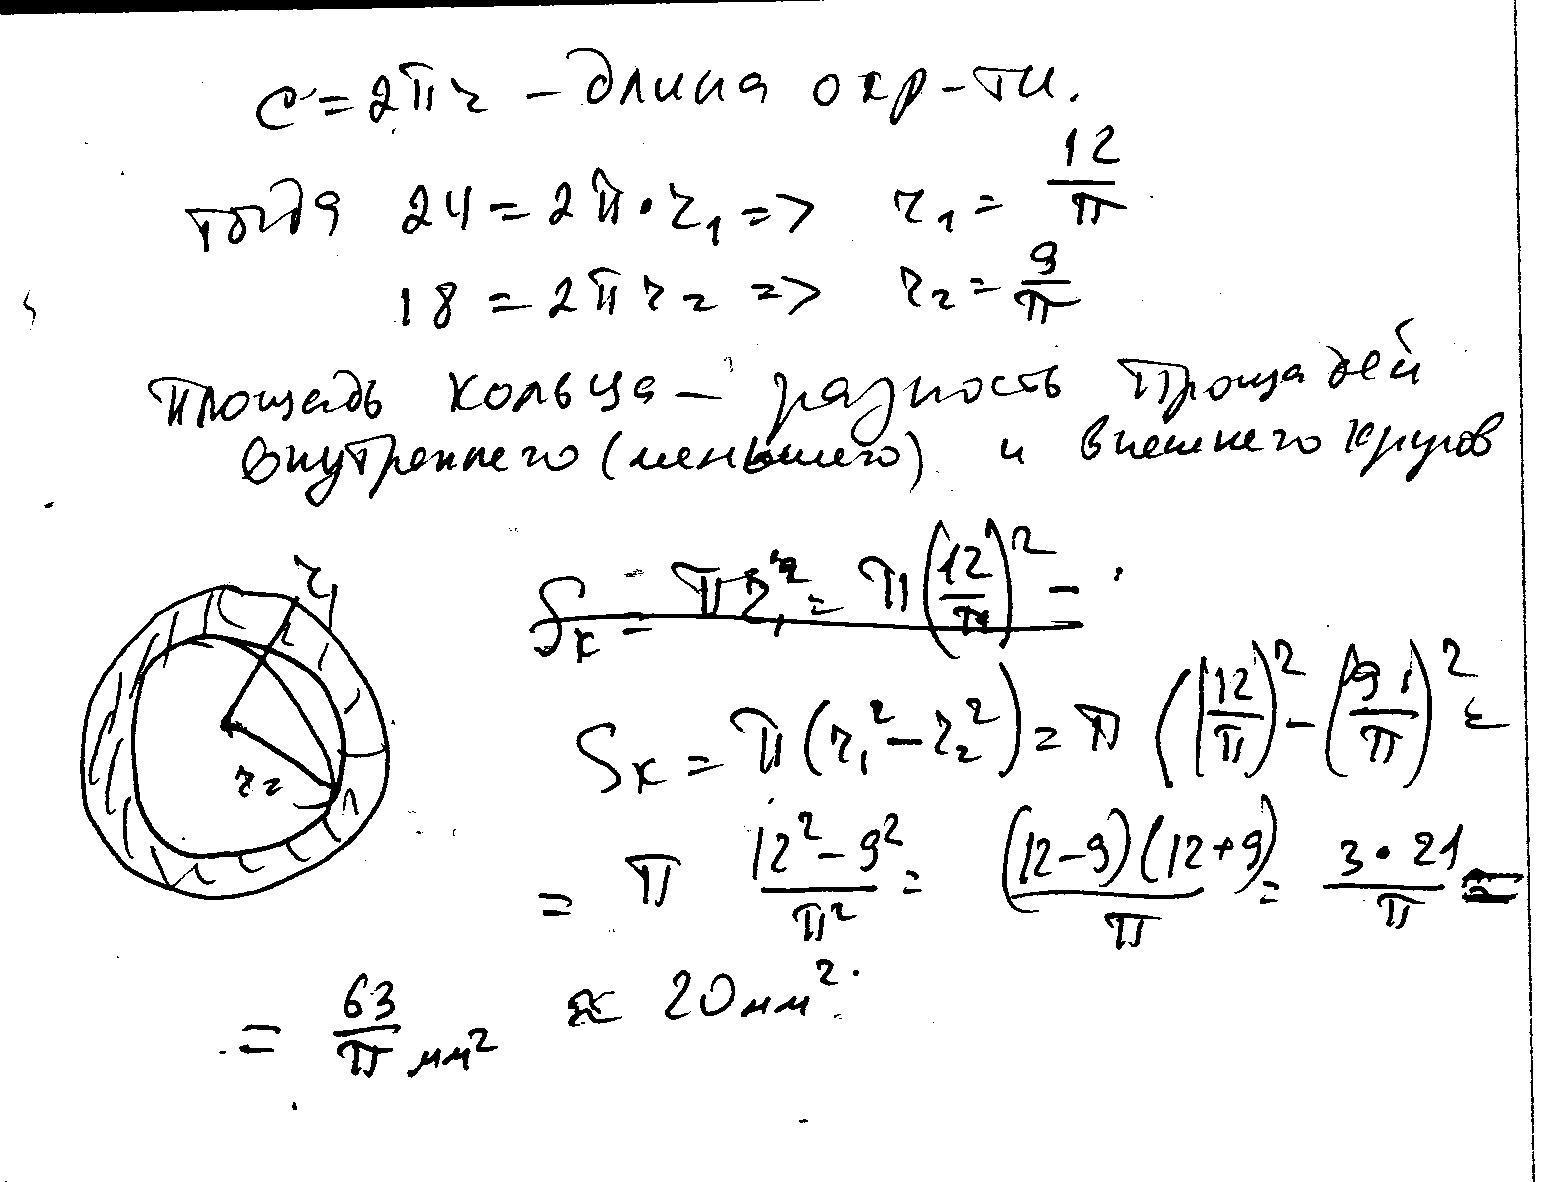 C = 2πr – длина окр-ти.
тогда 24 = 2π · r₁ => r₁ = 12/π
18 = 2πr₂ => r₂ = 9/π
Площадь кольца – разность площадей
внутреннего (меньшего) и внешнего кругов
r₁
r₂
Sк = πr₁² = π(12/π)² –
Sк = π(r₁² – r₂²) = π((12/π)² – (9/π)² =
= π (12² – 9²)/π² = (12–9)(12+9)/π = 3 · 21/π =
= 63/π мм² ≈ 20 мм².